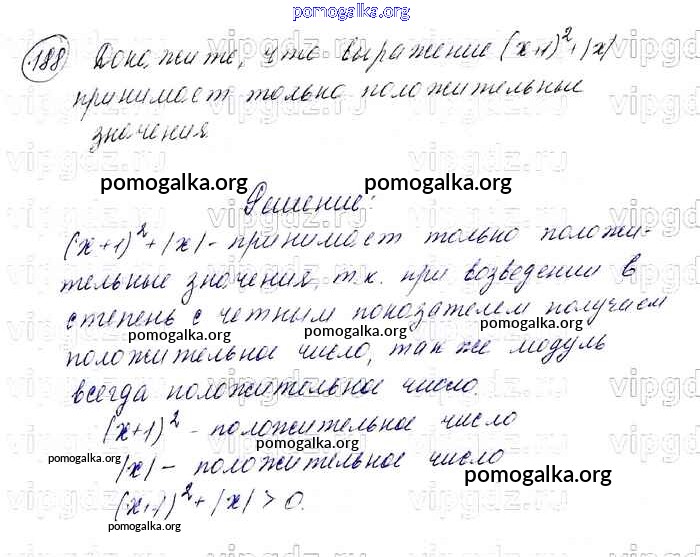 pomogalka.org
188 Докажите, что выражение (x+1)²+|x|
принимает только положительные
значения
pomogalka.org pomogalka.org
Решение:
(x+1)²+|x| - принимает только положи-
тельные значения, т.к. при возведении в
степень с четным показателем получаем
pomogalka.org pomogalka.org
положительное число, так же модуль
всегда положительное число.
(x+1)² - положительное число
pomogalka.org
pomogalka.org |x| - положительное число
pomogalka.org
(x+1)²+|x|>0.
pomogalka.org
vipgdz.ru